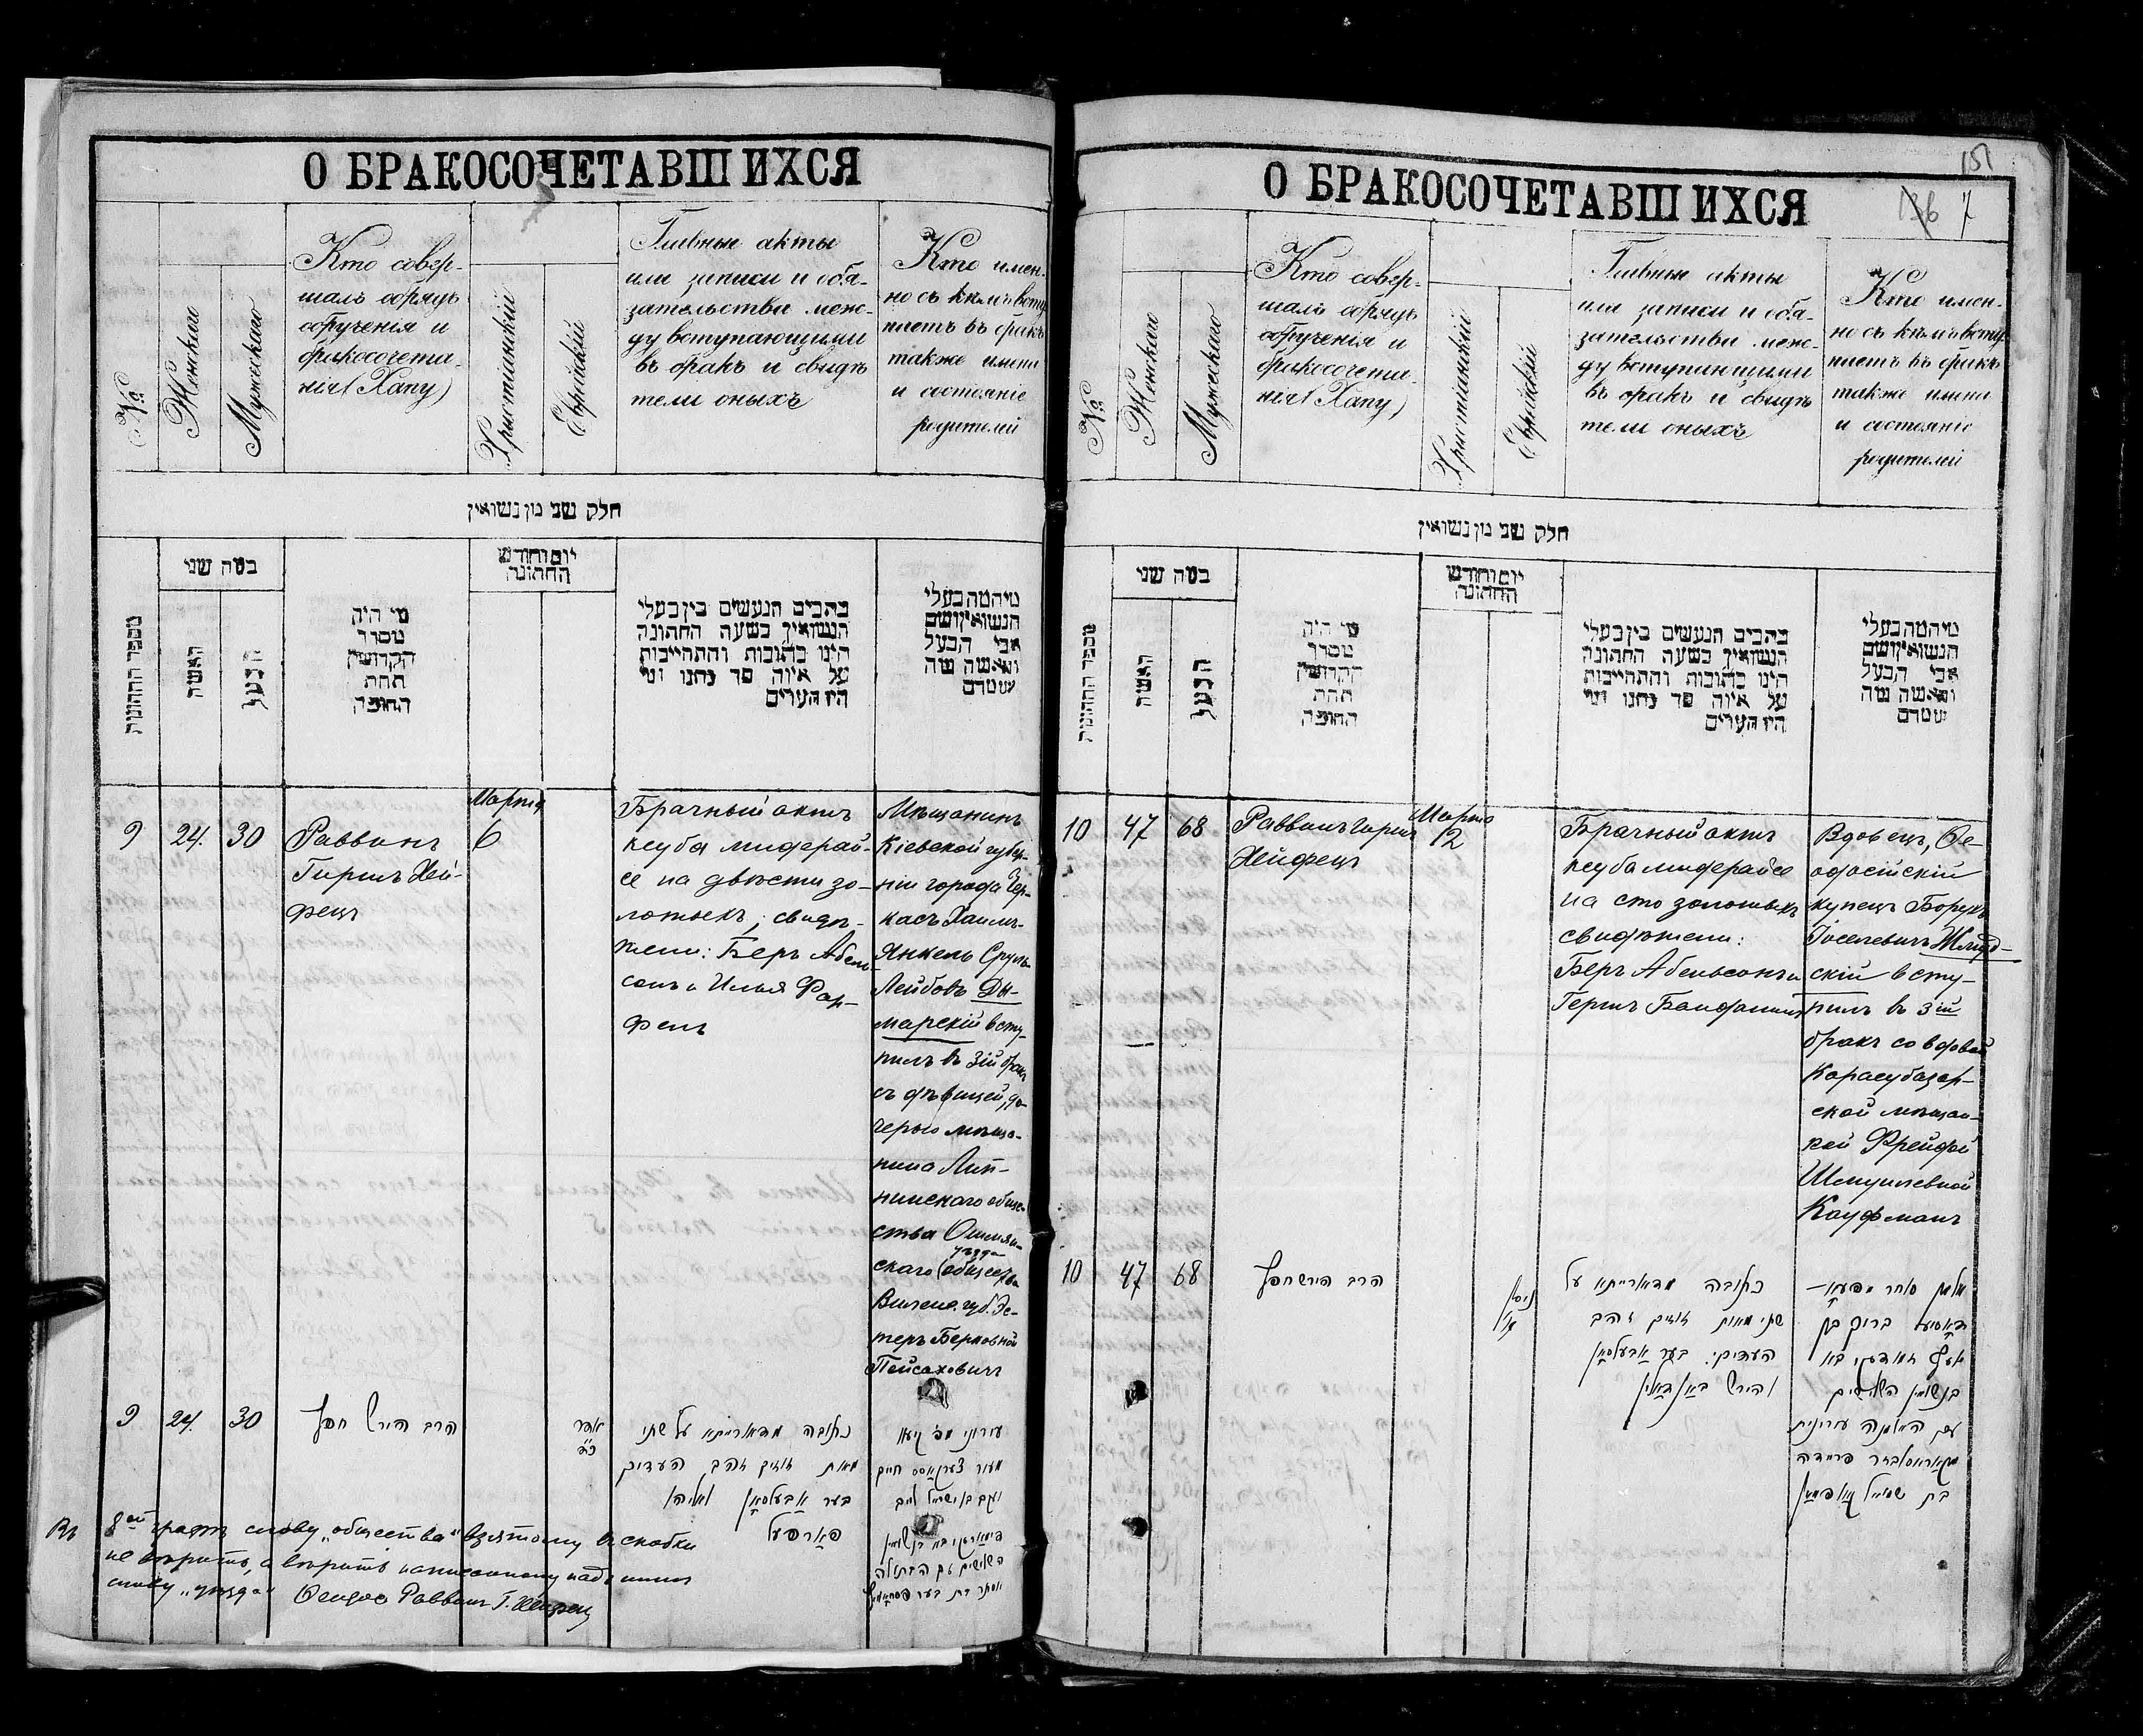 О БРАКОСОЧЕТАВШИХСЯ
№
Женскаго
Мужескаго
Кто совер-
шалъ обрядъ
обрученія и
бракосочета-
нія (Хапу)
Христіанскій
Еврейскій
Главные акты
или записи и обя-
зательства меж-
ду вступающими
въ бракъ и свидѣ
тели оныхъ
Кто имен-
но съ кѣмъ всту
паетъ въ бракъ
также имена
и состояніе
родителей
חלק שני מן נשואין
מספר החתונות
כמה שני
האשה
הבעל
מי היה
מסדר
הקדושין
תחת
החופה
יום וחודש
החתונה
כתבים הנעשים בין בעלי
הנשואין בשעה החתונה
היינו כתובות והתחייבות
על איזה סך נתנו ומי
היו העדים
מי המה בעלי
הנשואין ושם
אבי הבעל
והאשה
9 24. 30
Раввинъ
Гиршъ Хей-
фецъ
Марта
6
Брачный актъ
кеуба мидерай-
се на двѣсти зо-
лотыхъ, свидѣ-
тели: Беръ Абель-
сонъ и Илья Фар-
фель
Мѣщанинъ
Кіевской губер-
ніи города Чер-
касъ Хаимъ-
Янкель Сруль-
Лейбовъ Ды-
марскій всту-
пилъ въ 3ій бракъ
съ дѣвицей, до-
черью мѣща-
нина
общес-
ства Ошмян-
уѣзда
скаго (общества
Виленс. губ. Эс-
теръ Берковной
Пейсаховичъ
9 24. 30
הרב הירש חפץ
אדר
כתובה מדארייתא על שתי
מאות זוזים זהב העדים
בער אבעלסאן ואליהו
פארפעל
עירוני מפ קיעוו
מעיר צערקאסס חיים
יעקב בן ישראל לייב
דימארסקי בא בנשואין
השלישים עם הבתולה
אסתר בת בער פסחאוויץ
Въ 8ой графѣ слову „общества" взятому въ скобки
не вѣрить, а вѣрить написанному надъ нимъ
слову „уѣзда" Ѳеодос. Раввинъ Г. Хейфецъ
О БРАКОСОЧЕТАВШИХСЯ
151
136 7
№
Женскаго
Мужескаго
Кто совер-
шалъ обрядъ
обрученія и
бракосочета-
нія (Хапу)
Христіанскій
Еврейскій
Главные акты
или записи и обя-
зательства меж-
ду вступающими
въ бракъ и свидѣ
тели оныхъ
Кто имен-
но съ кѣмъ всту
паетъ въ бракъ
также имена
и состояніе
родителей
חלק שני מן נשואין
מספר החתונות
כמה שני
האשה
הבעל
מי היה
מסדר
הקדושין
תחת
החופה
יום וחודש
החתונה
כתבים הנעשים בין בעלי
הנשואין בשעה החתונה
היינו כתובות והתחייבות
על איזה סך נתנו ומי
היו העדים
מי המה בעלי
הנשואין ושם
אבי הבעל
והאשה
10 47 68
Раввинъ Гиршъ
Хейфецъ
Марта
12
Брачный актъ
кеуба мидерайсе
на сто золотыхъ
свидѣтели:
Беръ Абельсонъ и
Гершъ
Вдовецъ, Ѳе-
одосійскій
купецъ Борухъ
Іоселевичъ Жмуд-
скій всту-
пилъ въ 3ій
бракъ со вдовой
Карасубазар-
ской мѣщан-
кой Фрейдой
Шмуилевной
Кауфманъ
10 47 68
הרב הירש חפץ
ניסן
כתובה מדארייתא על
שתי מאות זוזים זהב
העדים: בער אבעלסאן
והירש
אלמן סוחר
ברוך בן
יוסף בא
בנשואין השלישים
עם האלמנה עירונית
מקאראסובזר פריידה
בת שמואל קויפמאן